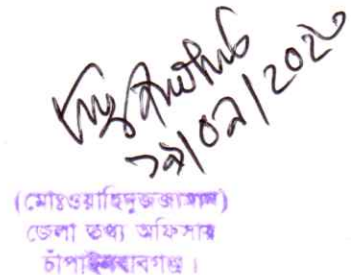 ১৯/০৯/২০২০
(মোঃওয়াহিদুজ্জামান)
জেলা তথ্য অফিসার
চাঁপাইনবাবগঞ্জ।